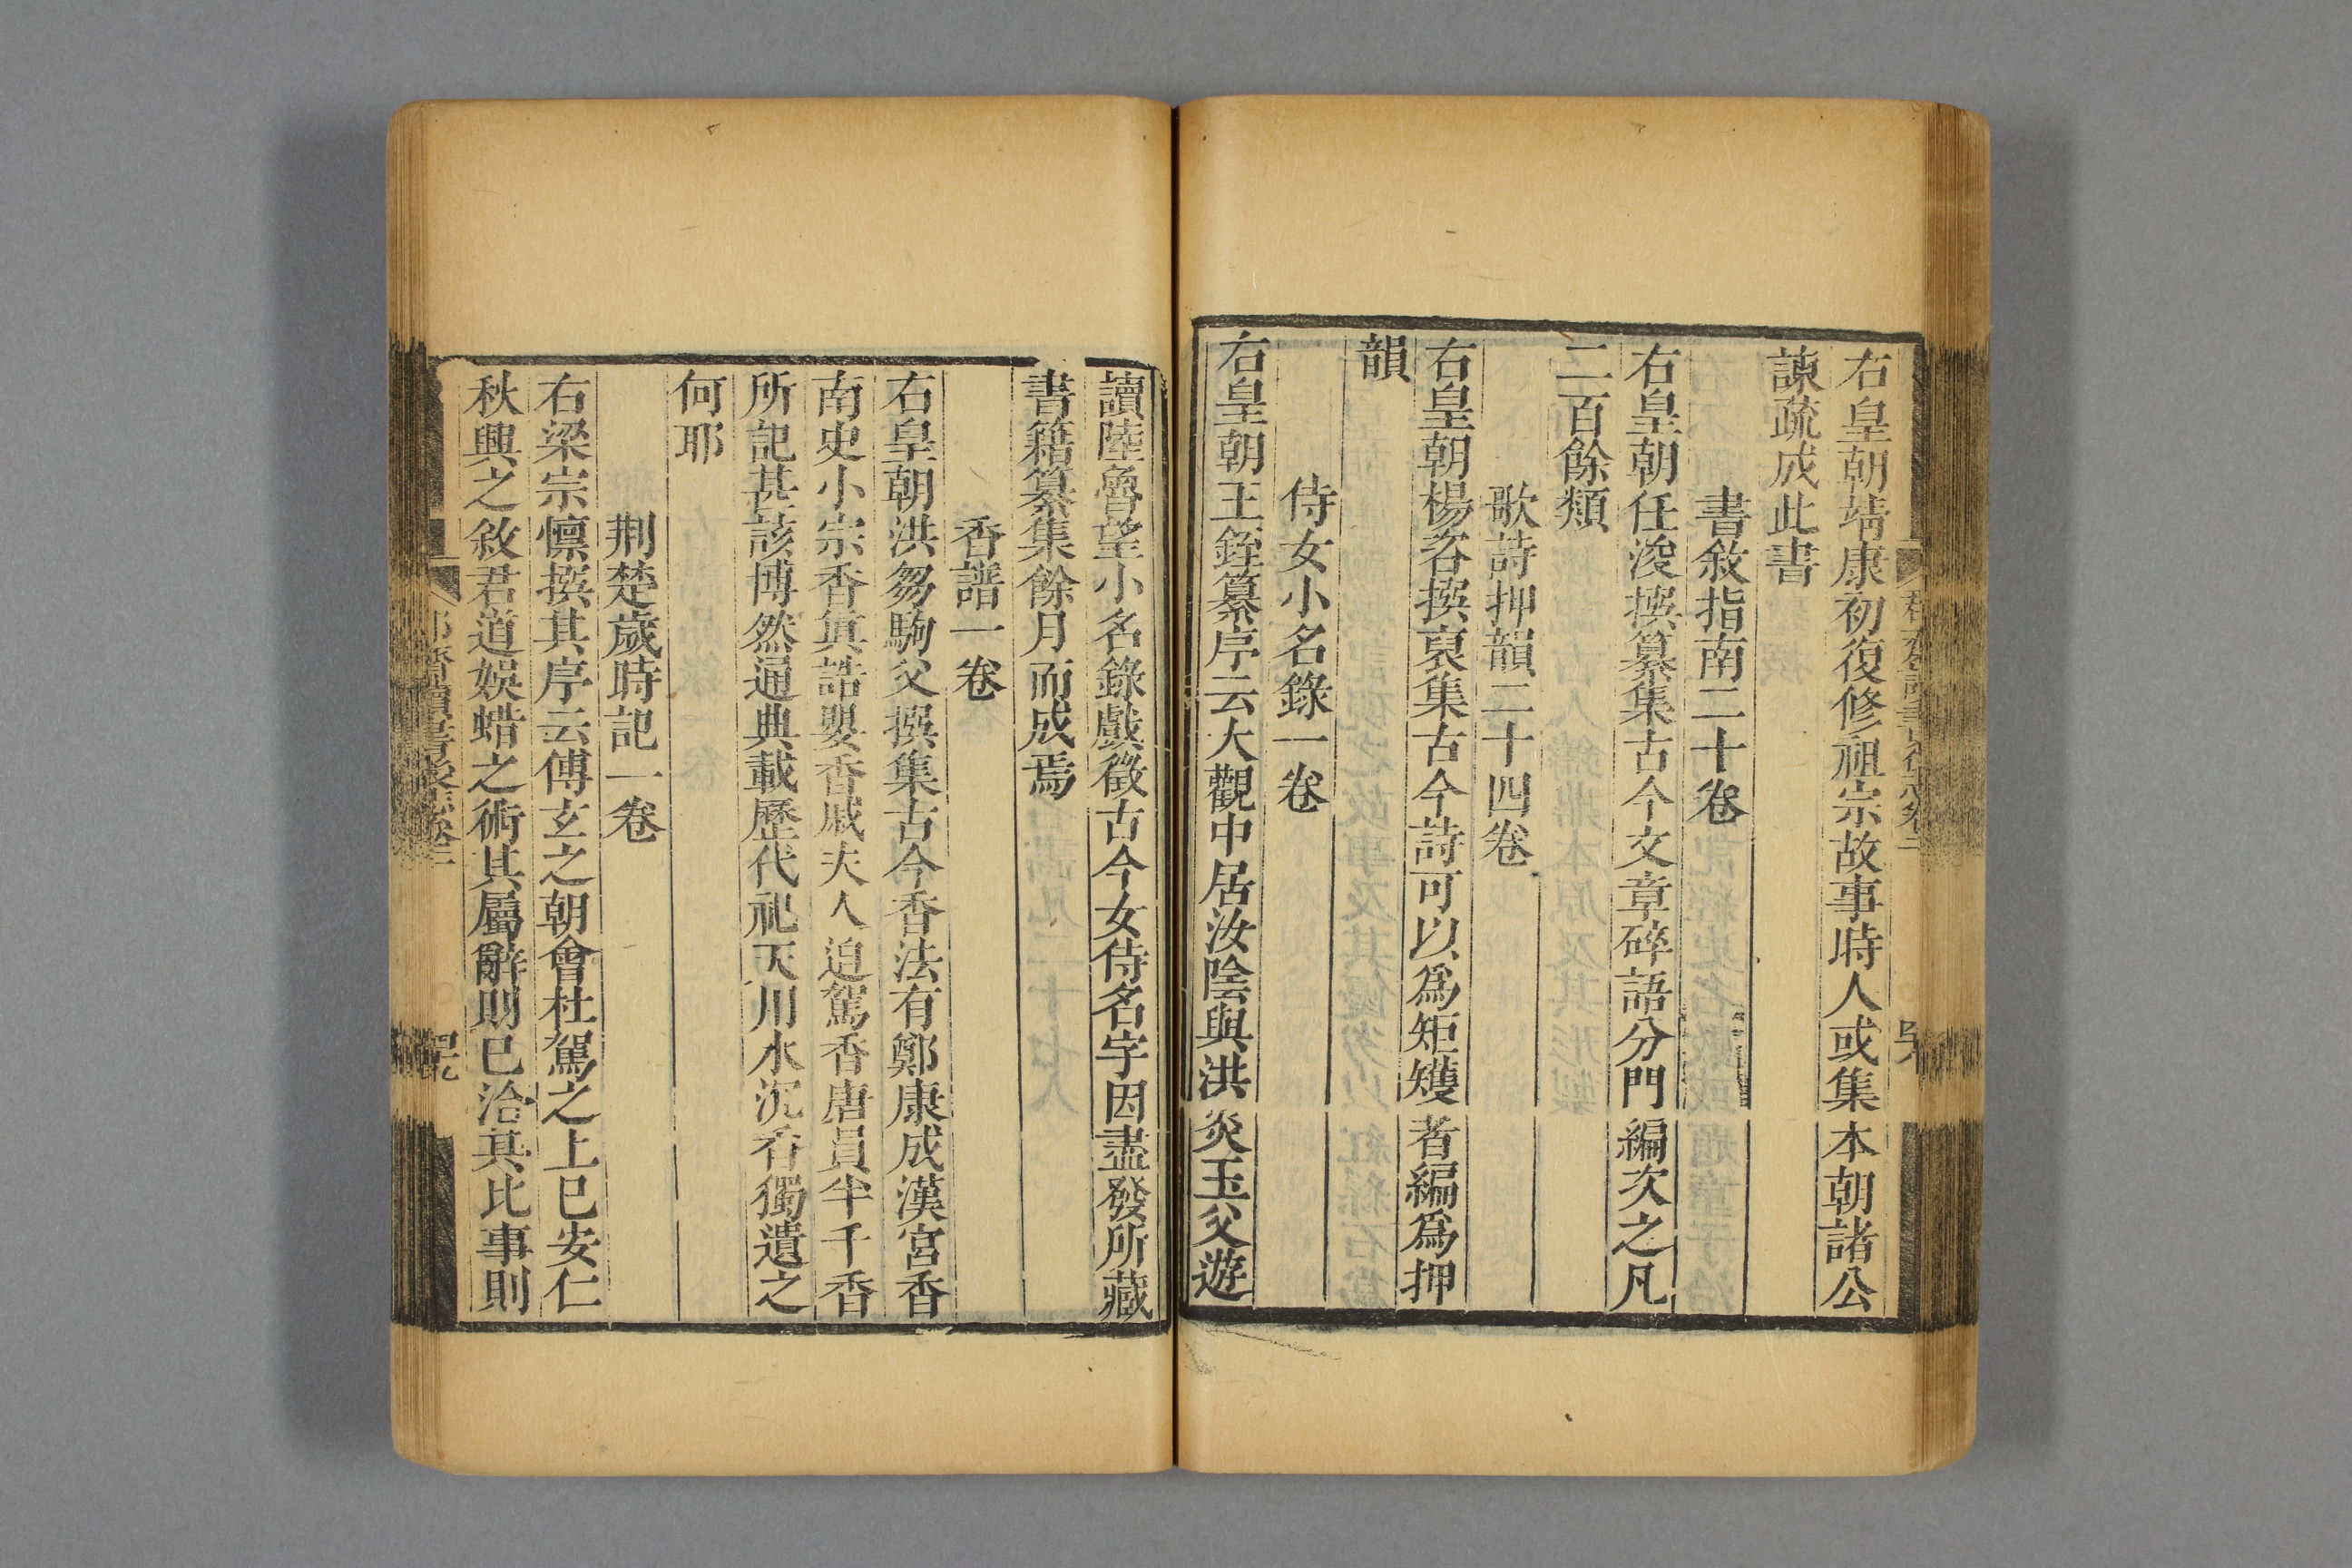 右皇朝靖康初復修祖宗故事時人或集本朝諸公
諫疏成此書
書敘指南二十卷
右皇朝任浚撰纂集古今文章碎語分門編次之凡
二百餘類
歌詩押韻二十四卷
右皇朝楊咨撰裒集古今詩可以爲矩矱者編爲押
韻
侍女小名錄一卷
右皇朝王銍纂序云大觀中居汝陰與洪炎玉父遊
讀陸魯望小名錄戲徵古今女侍名字因盡發所藏
書籍纂集餘月而成焉
香譜一卷
右皇朝洪芻駒父撰集古今香法有鄭康成漢宮香
南史小宗香真誥嬰香戚夫人迫駕香唐員半千香
所記甚該博然通典載歷代祀天用水沉香獨遺之
何耶
荆楚歲時記一卷
右梁宗懔撰其序云傅玄之朝會杜駕之上巳安仁
秋興之敘君道娛蜡之術其屬辭則已洽其比事則